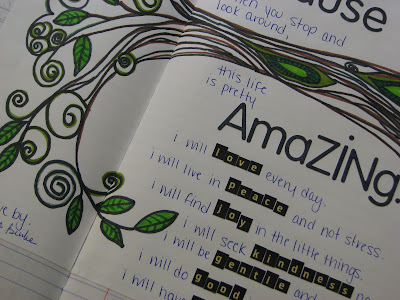 ause
when you stop and
look around,
this life
is pretty
AmaZiNg.
i will love every day.
i will live in peace and not stress.
i will find joy in the little things.
i will seek kindness
i will be gentle and
i will do good
i will have
by,